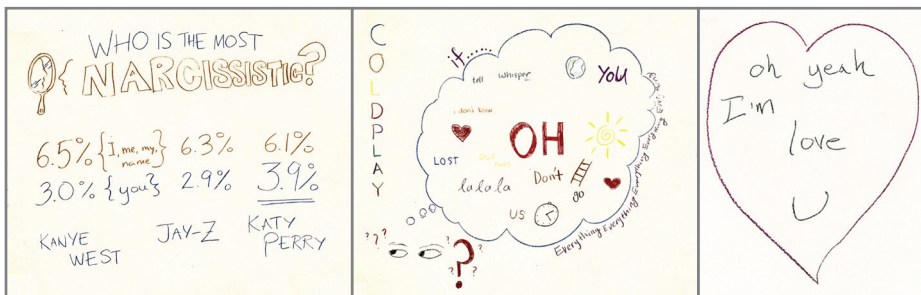 WHO IS THE MOST
NARCISSISTIC?
6.5% {I, me, my, name} 6.3% 6.1%
3.0% {you} 2.9% 3.9%
KANYE WEST JAY-Z KATY PERRY
COLDPLAY
if......
tell whisper YOU
i don't know
OH
LOST
Don't
la la la
go
US
Everything Everything Everything Everything
? ? ?
? ? ? ? ?
oh yeah
I'm
love
U